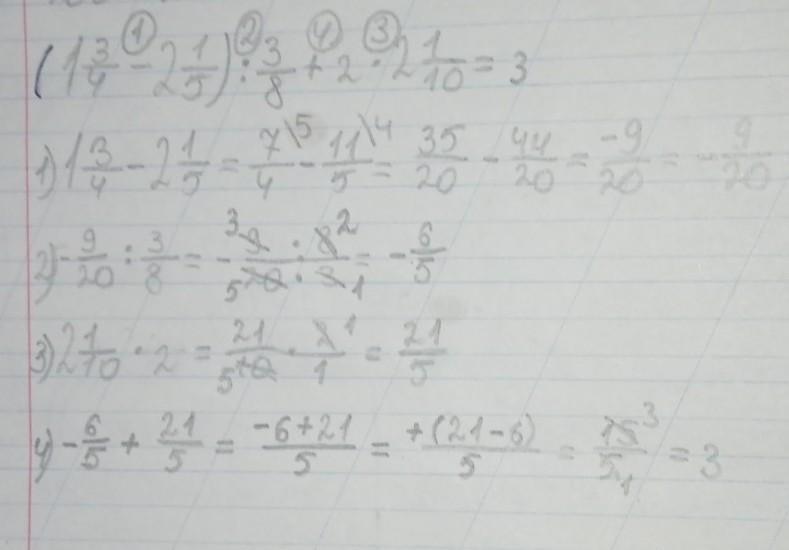 (1 3/4 - 2 1/5) : 3/8 + 2 · 2 1/10 = 3
① ② ④ ③
1) 1 3/4 - 2 1/5 = 7\5/4 - 11\4/5 = 35/20 - 44/20 = -9/20 = - 9/20
2) - 9/20 : 3/8 = - 9 3 · 8 2/20 5 · 3 1 = - 6/5
3) 2 1/10 · 2 = 21/10 5 · 2 1/1 = 21/5
4) - 6/5 + 21/5 = -6+21/5 = +(21-6)/5 = 15 3/5 1 = 3